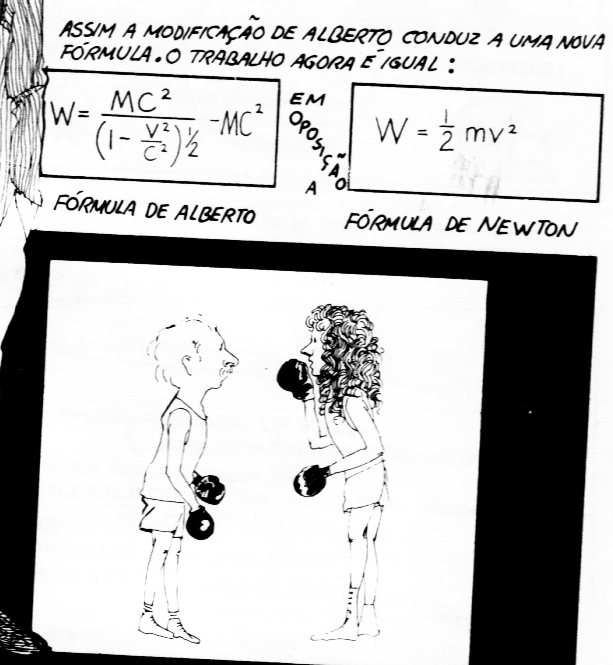 ASSIM A MODIFICAÇÃO DE ALBERTO CONDUZ A UMA NOVA
FÓRMULA. O TRABALHO AGORA É IGUAL :
W = MC² / (1 - V²/C²)½ - MC²
EM
OPOSIÇÃO
A
W = 1/2 mv²
FÓRMULA DE ALBERTO
FÓRMULA DE NEWTON